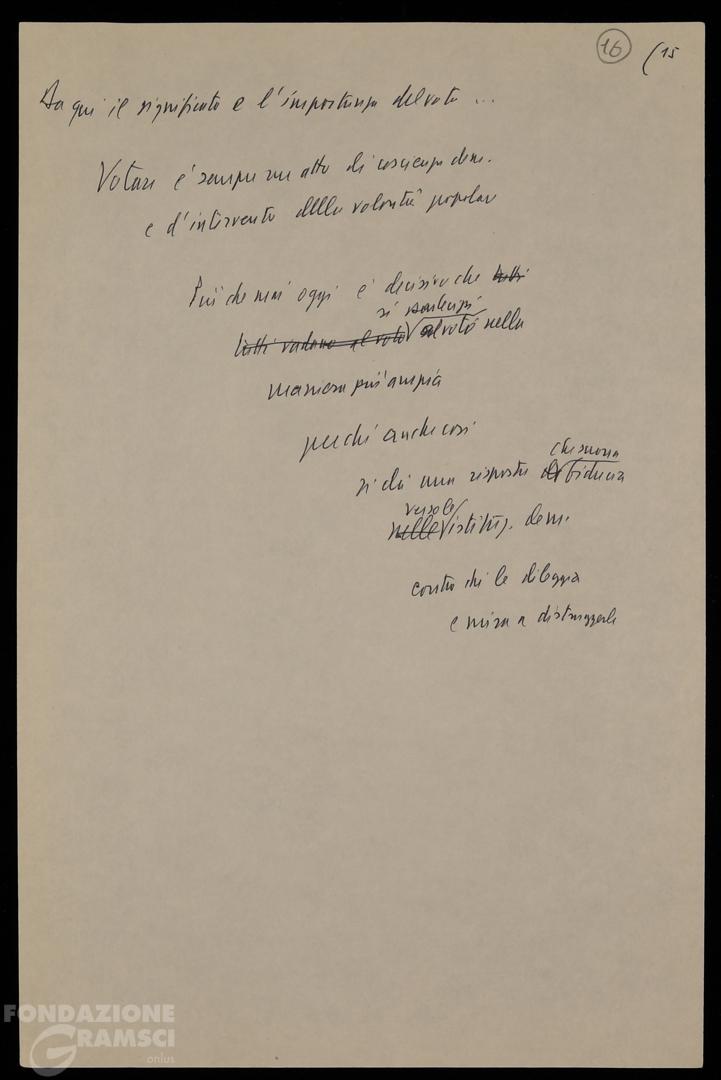 16 (15
Da qui il significato e l'importanza del voto ...
Votare è sempre un atto di coscienza dem.
e d'intervento della volontà popolare
Più che mai oggi è decisivo che tutti
si partecipi
tutti vadano al voto al voto nella
maniera più ampia
perché anche così
che suona
si dà una risposta di fiducia
verso le
nelle istituz. dem.
contro chi le dileggia
e mira a distruggerle
FONDAZIONE
GRAMSCI
onlus